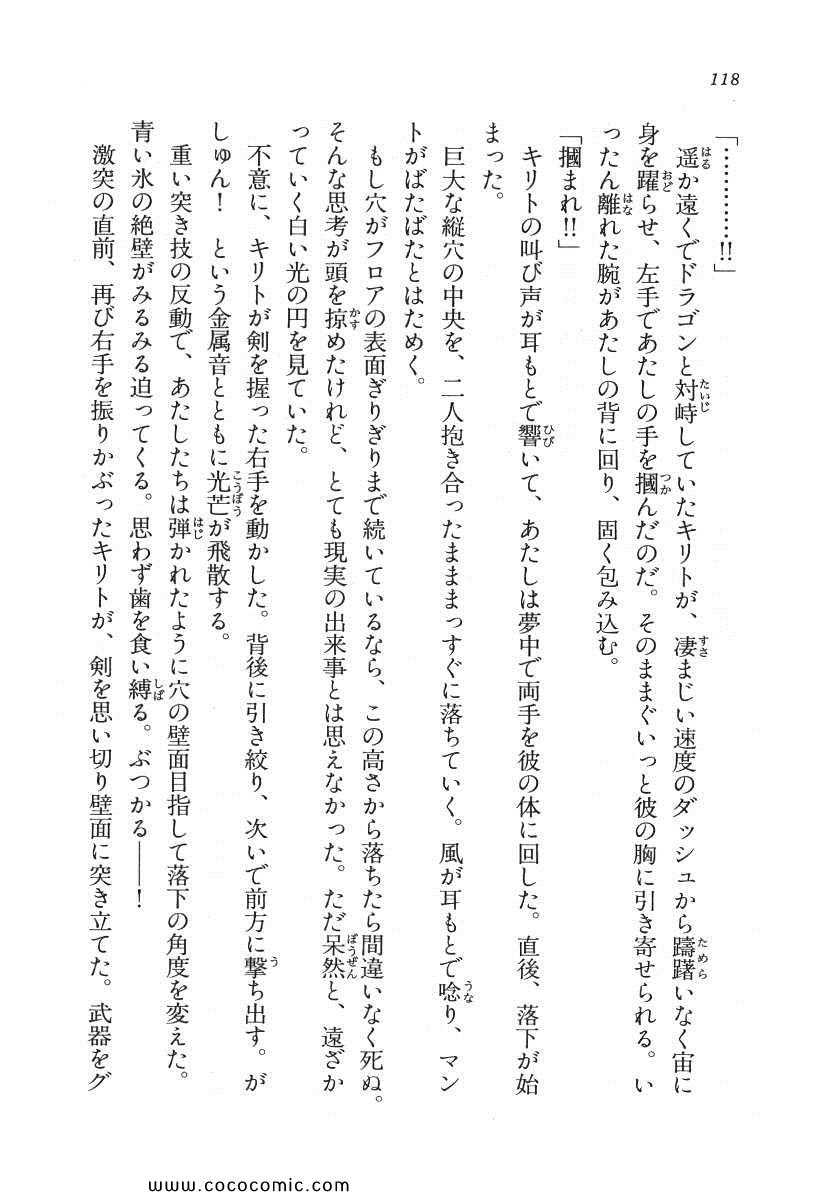 118
「…………!!」
遥か遠くでドラゴンと対峙していたキリトが、凄まじい速度のダッシュから躊躇いなく宙に
身を躍らせ、左手であたしの手を摑んだのだ。そのままぐいっと彼の胸に引き寄せられる。い
ったん離れた腕があたしの背に回り、固く包み込む。
「摑まれ!!」
キリトの叫び声が耳もとで響いて、あたしは夢中で両手を彼の体に回した。直後、落下が始
まった。
巨大な縦穴の中央を、二人抱き合ったまままっすぐに落ちていく。風が耳もとで唸り、マン
トがばたばたとはためく。
もし穴がフロアの表面ぎりぎりまで続いているなら、この高さから落ちたら間違いなく死ぬ。
そんな思考が頭を掠めたけれど、とても現実の出来事とは思えなかった。ただ呆然と、遠ざか
っていく白い光の円を見ていた。
不意に、キリトが剣を握った右手を動かした。背後に引き絞り、次いで前方に撃ち出す。が
しゅん！　という金属音とともに光芒が飛散する。
重い突き技の反動で、あたしたちは弾かれたように穴の壁面目指して落下の角度を変えた。
青い氷の絶壁がみるみる迫ってくる。思わず歯を食い縛る。ぶつかる――！
激突の直前、再び右手を振りかぶったキリトが、剣を思い切り壁面に突き立てた。武器をグ
www.cococomic.com